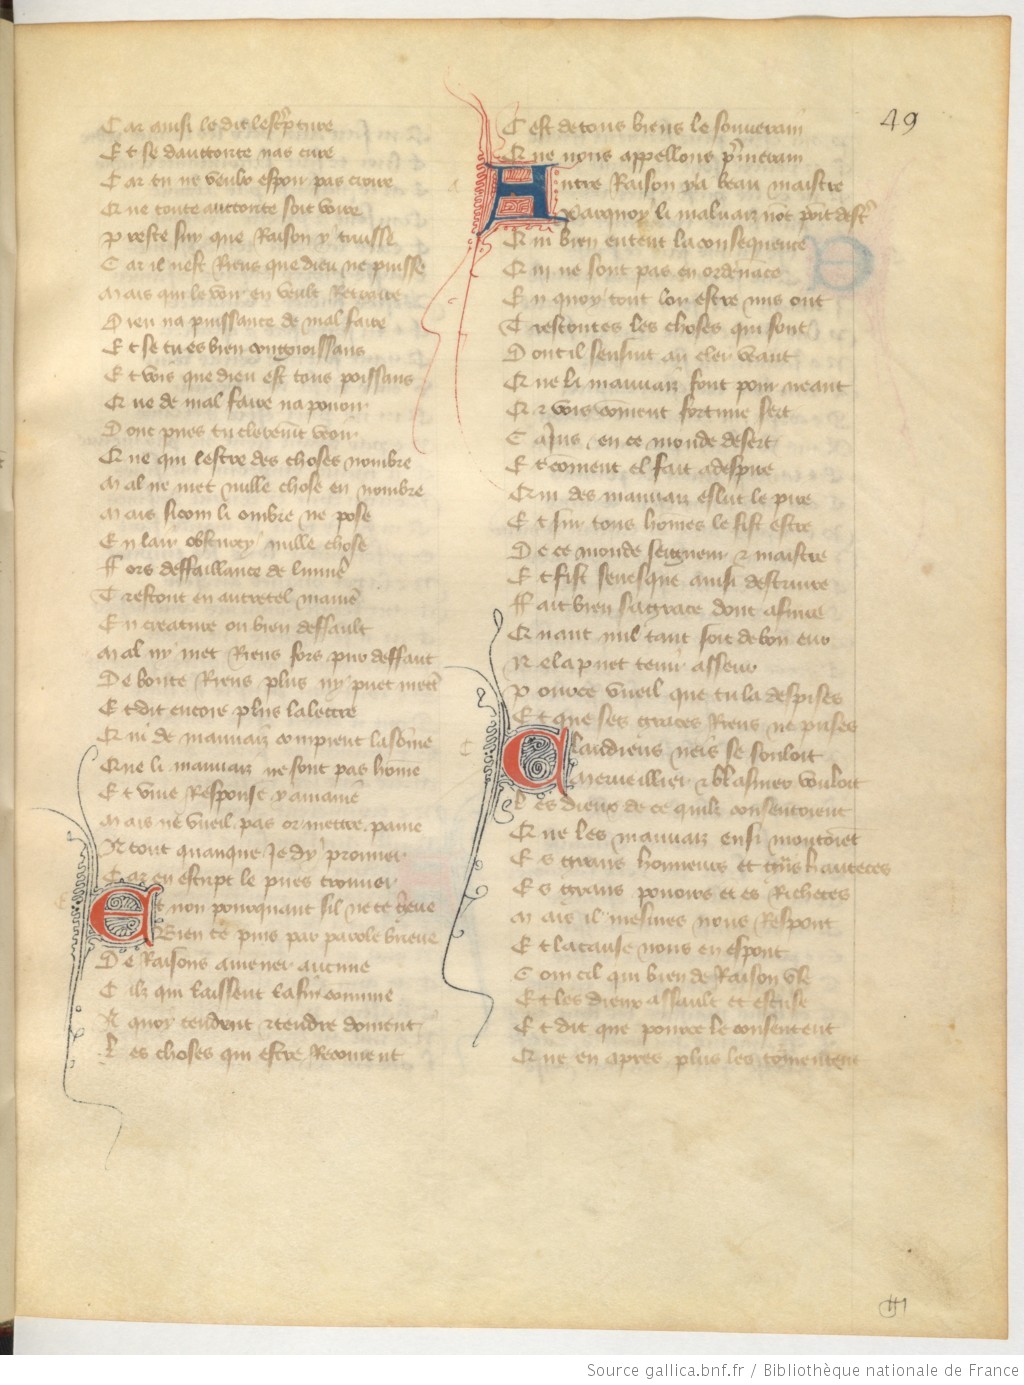 49
Car ainsi le dit lescripture
Et se dauctorite nas cure
Car tu ne veulz espoir pas croire
Que toute auctorite soit voire
Preste suy que Raison y truisse
Car il nest Riens que dieu ne puisse
Mais qui le voir en veult Retraire
Dieu na puissance de mal faire
Et se tu es bien congnoissans
Et vois que dieu est tous poissans
Que de mal faire na pouoir
Donc pues tu clerement veoir
Que qui lestre des choses nombre
Mal ne met nulle chose en nombre
Mais sicom li ombre ne pose
En lair obscurcy nulle chose
Fors deffaillance de lumiere
Trestout en autretel maniere
En creature ou bien deffault
Mal ny met Riens fors pur deffaut
De bonte Riens plus ny puet mettre
Et dit encore plus la lettre
Qui de mauuaiz comprent la somme
Que li mauuaiz ne sont pas homme
Et viue Response y amaine
Mais ne vueil pas or mettre paine
A tout quanque Je dy prouuer
Car en escript le pues trouuer
Et non pourquant sil ne te grieue
Bien te puis par parole brieue
De Raisons amener aucune
Cilz qui laissent la fin commune
A quoy tendent et tendre doiuent
Les choses qui estre Recoiuent
Cest de tous biens le souuerain
Que nous appellons primerain
Autre Raison y a beau maistre
Parquoy li mauuaiz nont point destre
Qui bien entent la consequence
Qui ne sont pas en ordenance
En quoy tout lor estre mis ont
Trestoutes les choses qui sont
Dont il sensuit au cler veant
Que li mauuaiz sont pour neant
Or vois comment fortune sert
Ca Jus en ce monde desert
Et comment el fait a despire
Qui des mauuaiz eslut le pire
Et sur tous hommes le fist estre
De ce monde seigneur et maistre
Et fist senesque ainsi destruire
Fait bien sa grace dont a fuire
Quant nul tant soit de bon eur
Ne la puet tenir asseur
Pource vueil que tu la despises
Et que ses graces Riens ne prises
Claudiens neis se souloit
Merueillier et blasmer vouloit
Les dieux de ce quilz consentoient
Que les mauuaiz ensi montoient
Es grans honneurs et grans hauteces
Es grans pouoirs et es Richeces
Mais il mesmes nous Respont
Et la cause nous en espont
Com cil qui bien de Raison vse
Et les dieux assault et escuse
Et dit que pource le consentent
Que en apres plus les tormentent
Source gallica.bnf.fr / Bibliothèque nationale de France